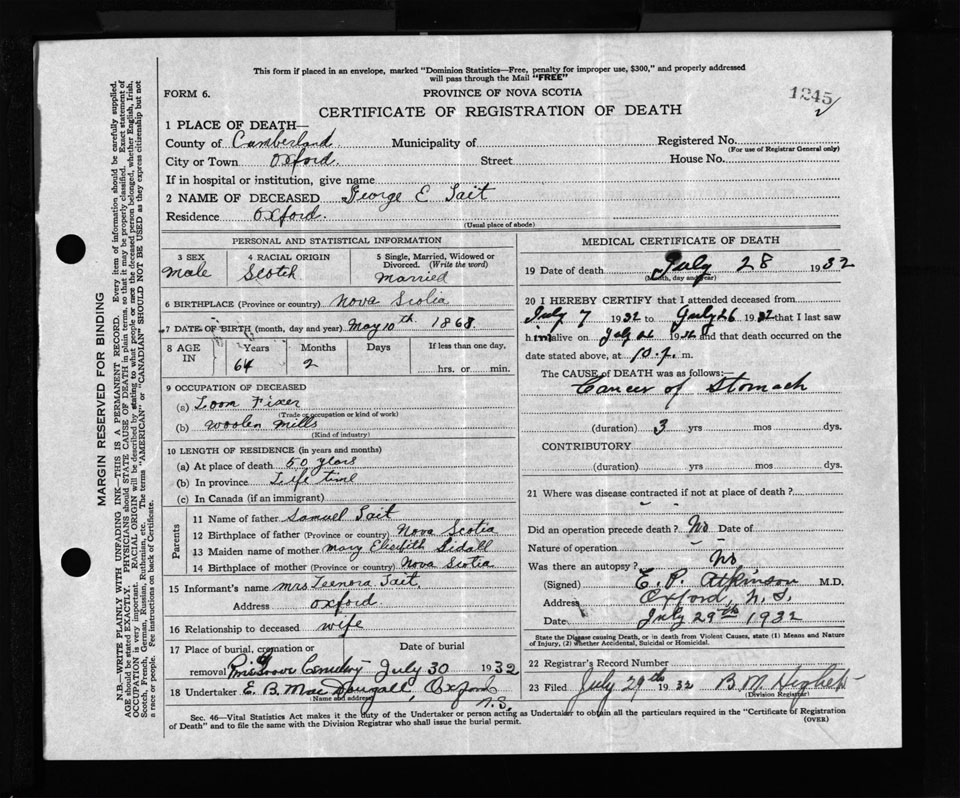 This form if placed in an envelope, marked "Dominion Statistics—Free, penalty for improper use, $300," and properly addressed
will pass through the Mail "FREE"
FORM 6.
PROVINCE OF NOVA SCOTIA
1245/2
CERTIFICATE OF REGISTRATION OF DEATH
1 PLACE OF DEATH—
County of Cumberland Municipality of Registered No.
(For use of Registrar General only)
City or Town Oxford. Street House No.
If in hospital or institution, give name
2 NAME OF DECEASED George E Tait
Residence Oxford.
(Usual place of abode)
PERSONAL AND STATISTICAL INFORMATION
3 SEX 4 RACIAL ORIGIN 5 Single, Married, Widowed or
Divorced. (Write the word)
male Scotch Married
6 BIRTHPLACE (Province or country) Nova Scotia
7 DATE OF BIRTH (month, day and year) May 10th 1868.
8 AGE IN Years Months Days If less than one day,
64 2 hrs. or min.
9 OCCUPATION OF DECEASED
(a) Loom Fixer
(Trade or occupation or kind of work)
(b) Woolen Mills
(Kind of industry)
10 LENGTH OF RESIDENCE (in years and months)
(a) At place of death 50 years
(b) In province Life time
(c) In Canada (if an immigrant)
Parents
11 Name of father Samuel Tait
12 Birthplace of father (Province or country) Nova Scotia
13 Maiden name of mother Mary Elizabeth Sidall
14 Birthplace of mother (Province or country) Nova Scotia
15 Informant's name Mrs Leenora Tait.
Address Oxford.
16 Relationship to deceased wife
17 Place of burial, cremation or Date of burial
removal Cemetery July 30 1932
18 Undertaker E. B. MacDougall, Oxford
N.S.
(Name and address)
MEDICAL CERTIFICATE OF DEATH
19 Date of death July 28 1932
(Month, day and year)
20 I HEREBY CERTIFY that I attended deceased from
July 7 1932 to July 26 1932 that I last saw
him alive on July 26 1932 and that death occurred on the
date stated above, at 10. p. m.
The CAUSE of DEATH was as follows:
Cancer of Stomach
(duration) 3 yrs mos dys.
CONTRIBUTORY
(duration) yrs mos dys.
21 Where was disease contracted if not at place of death?
Did an operation precede death? No Date of
Nature of operation
Was there an autopsy? No
(Signed) E. P. Atkinson M.D.
Address Oxford, N.S.
Date July 29th 1932
State the Disease causing Death, or in death from Violent Causes, state (1) Means and Nature
of Injury, (2) whether Accidental, Suicidal or Homicidal.
22 Registrar's Record Number
23 Filed July 29th 1932 B. M.
(Division Registrar)
Sec. 46—Vital Statistics Act makes it the duty of the Undertaker or person acting as Undertaker to obtain all the particulars required in the "Certificate of Registration
of Death" and to file the same with the Division Registrar who shall issue the burial permit.
(OVER)
MARGIN RESERVED FOR BINDING
N.B.—WRITE PLAINLY WITH UNFADING INK—THIS IS A PERMANENT RECORD. Every item of information should be carefully supplied.
AGE should be stated EXACTLY. PHYSICIANS should STATE CAUSE OF DEATH in plain terms, so that it may be properly classified. Exact statement of
OCCUPATION is very important. RACIAL ORIGIN will be described by stating to what people or race the deceased person belonged, whether English, Irish,
Scotch, French, German, Russian, Ruthenian, etc. The terms "AMERICAN" or "CANADIAN" SHOULD NOT BE USED as they express citizenship but not
a race or people. See instructions on back of Certificate.